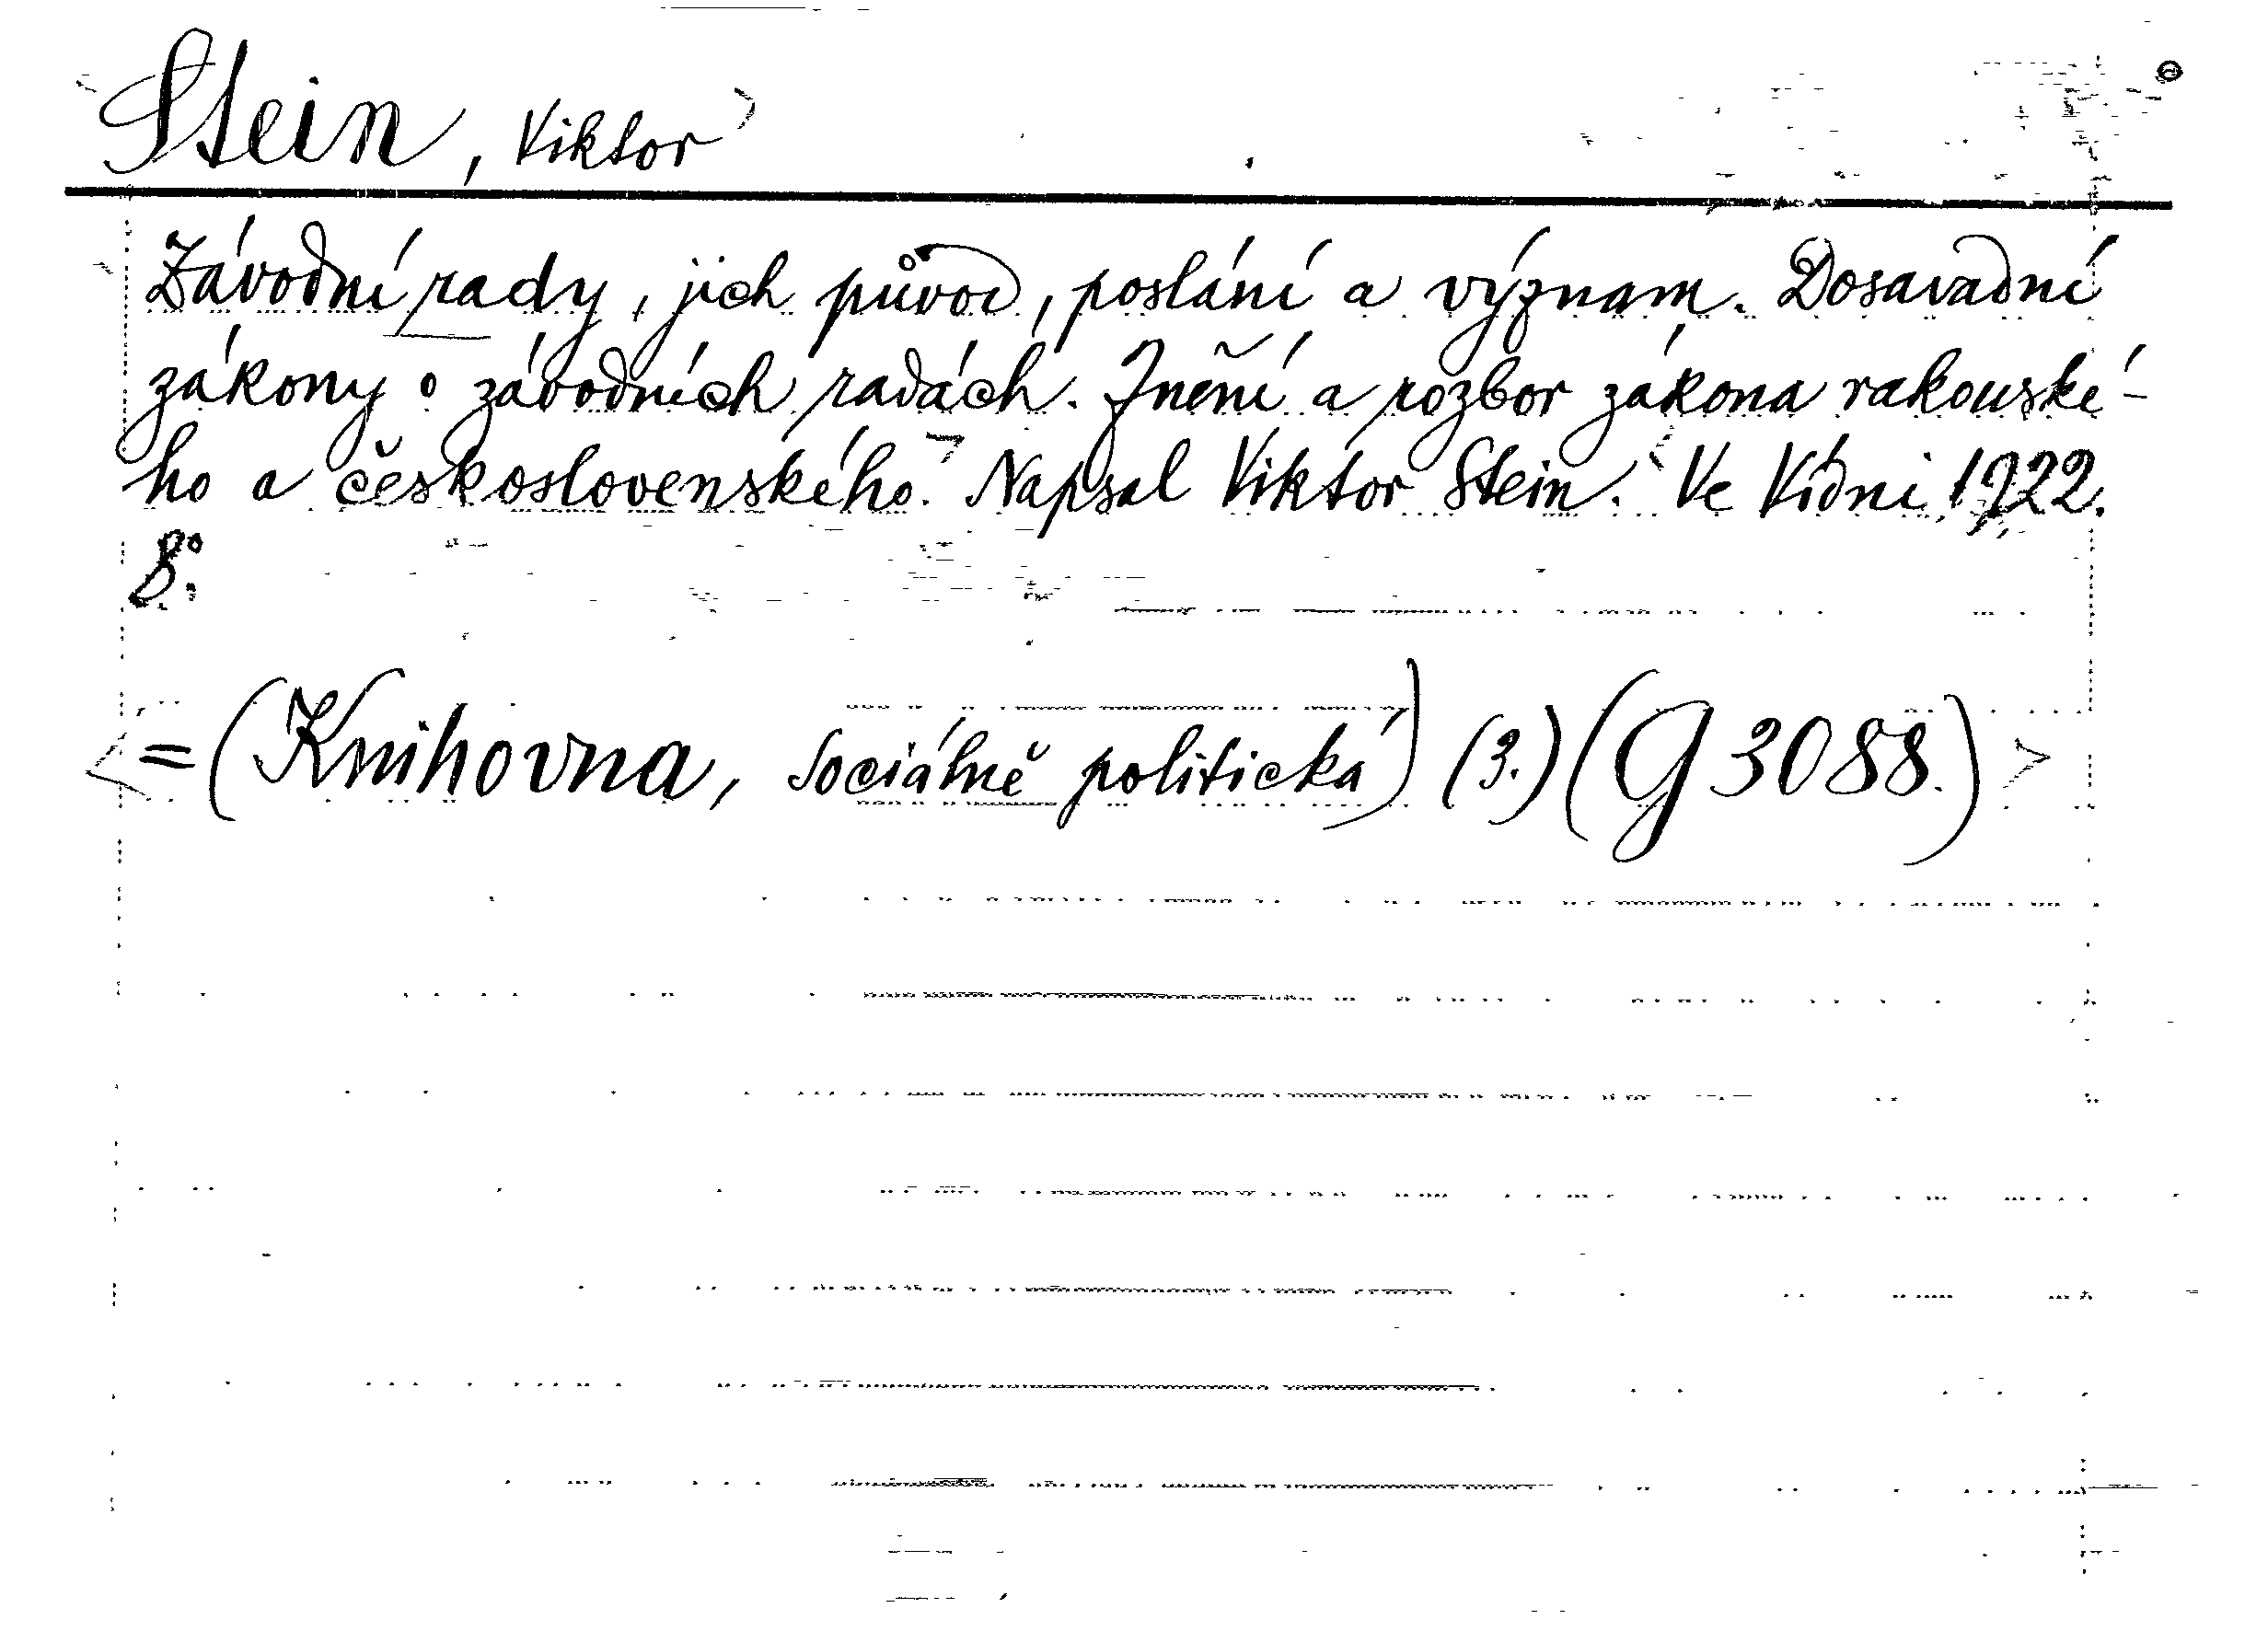 Stein, Viktor
Závodní rady, jich původ, poslání a význam. Dosavadní
zákony o závodních radách. Znění a rozbor zákona rakouské-
ho a československého. Napsal Viktor Stein. Ve Vídni 1922.
8°.
= (Knihovna, Sociálně politická) (3.) (G 3088.)